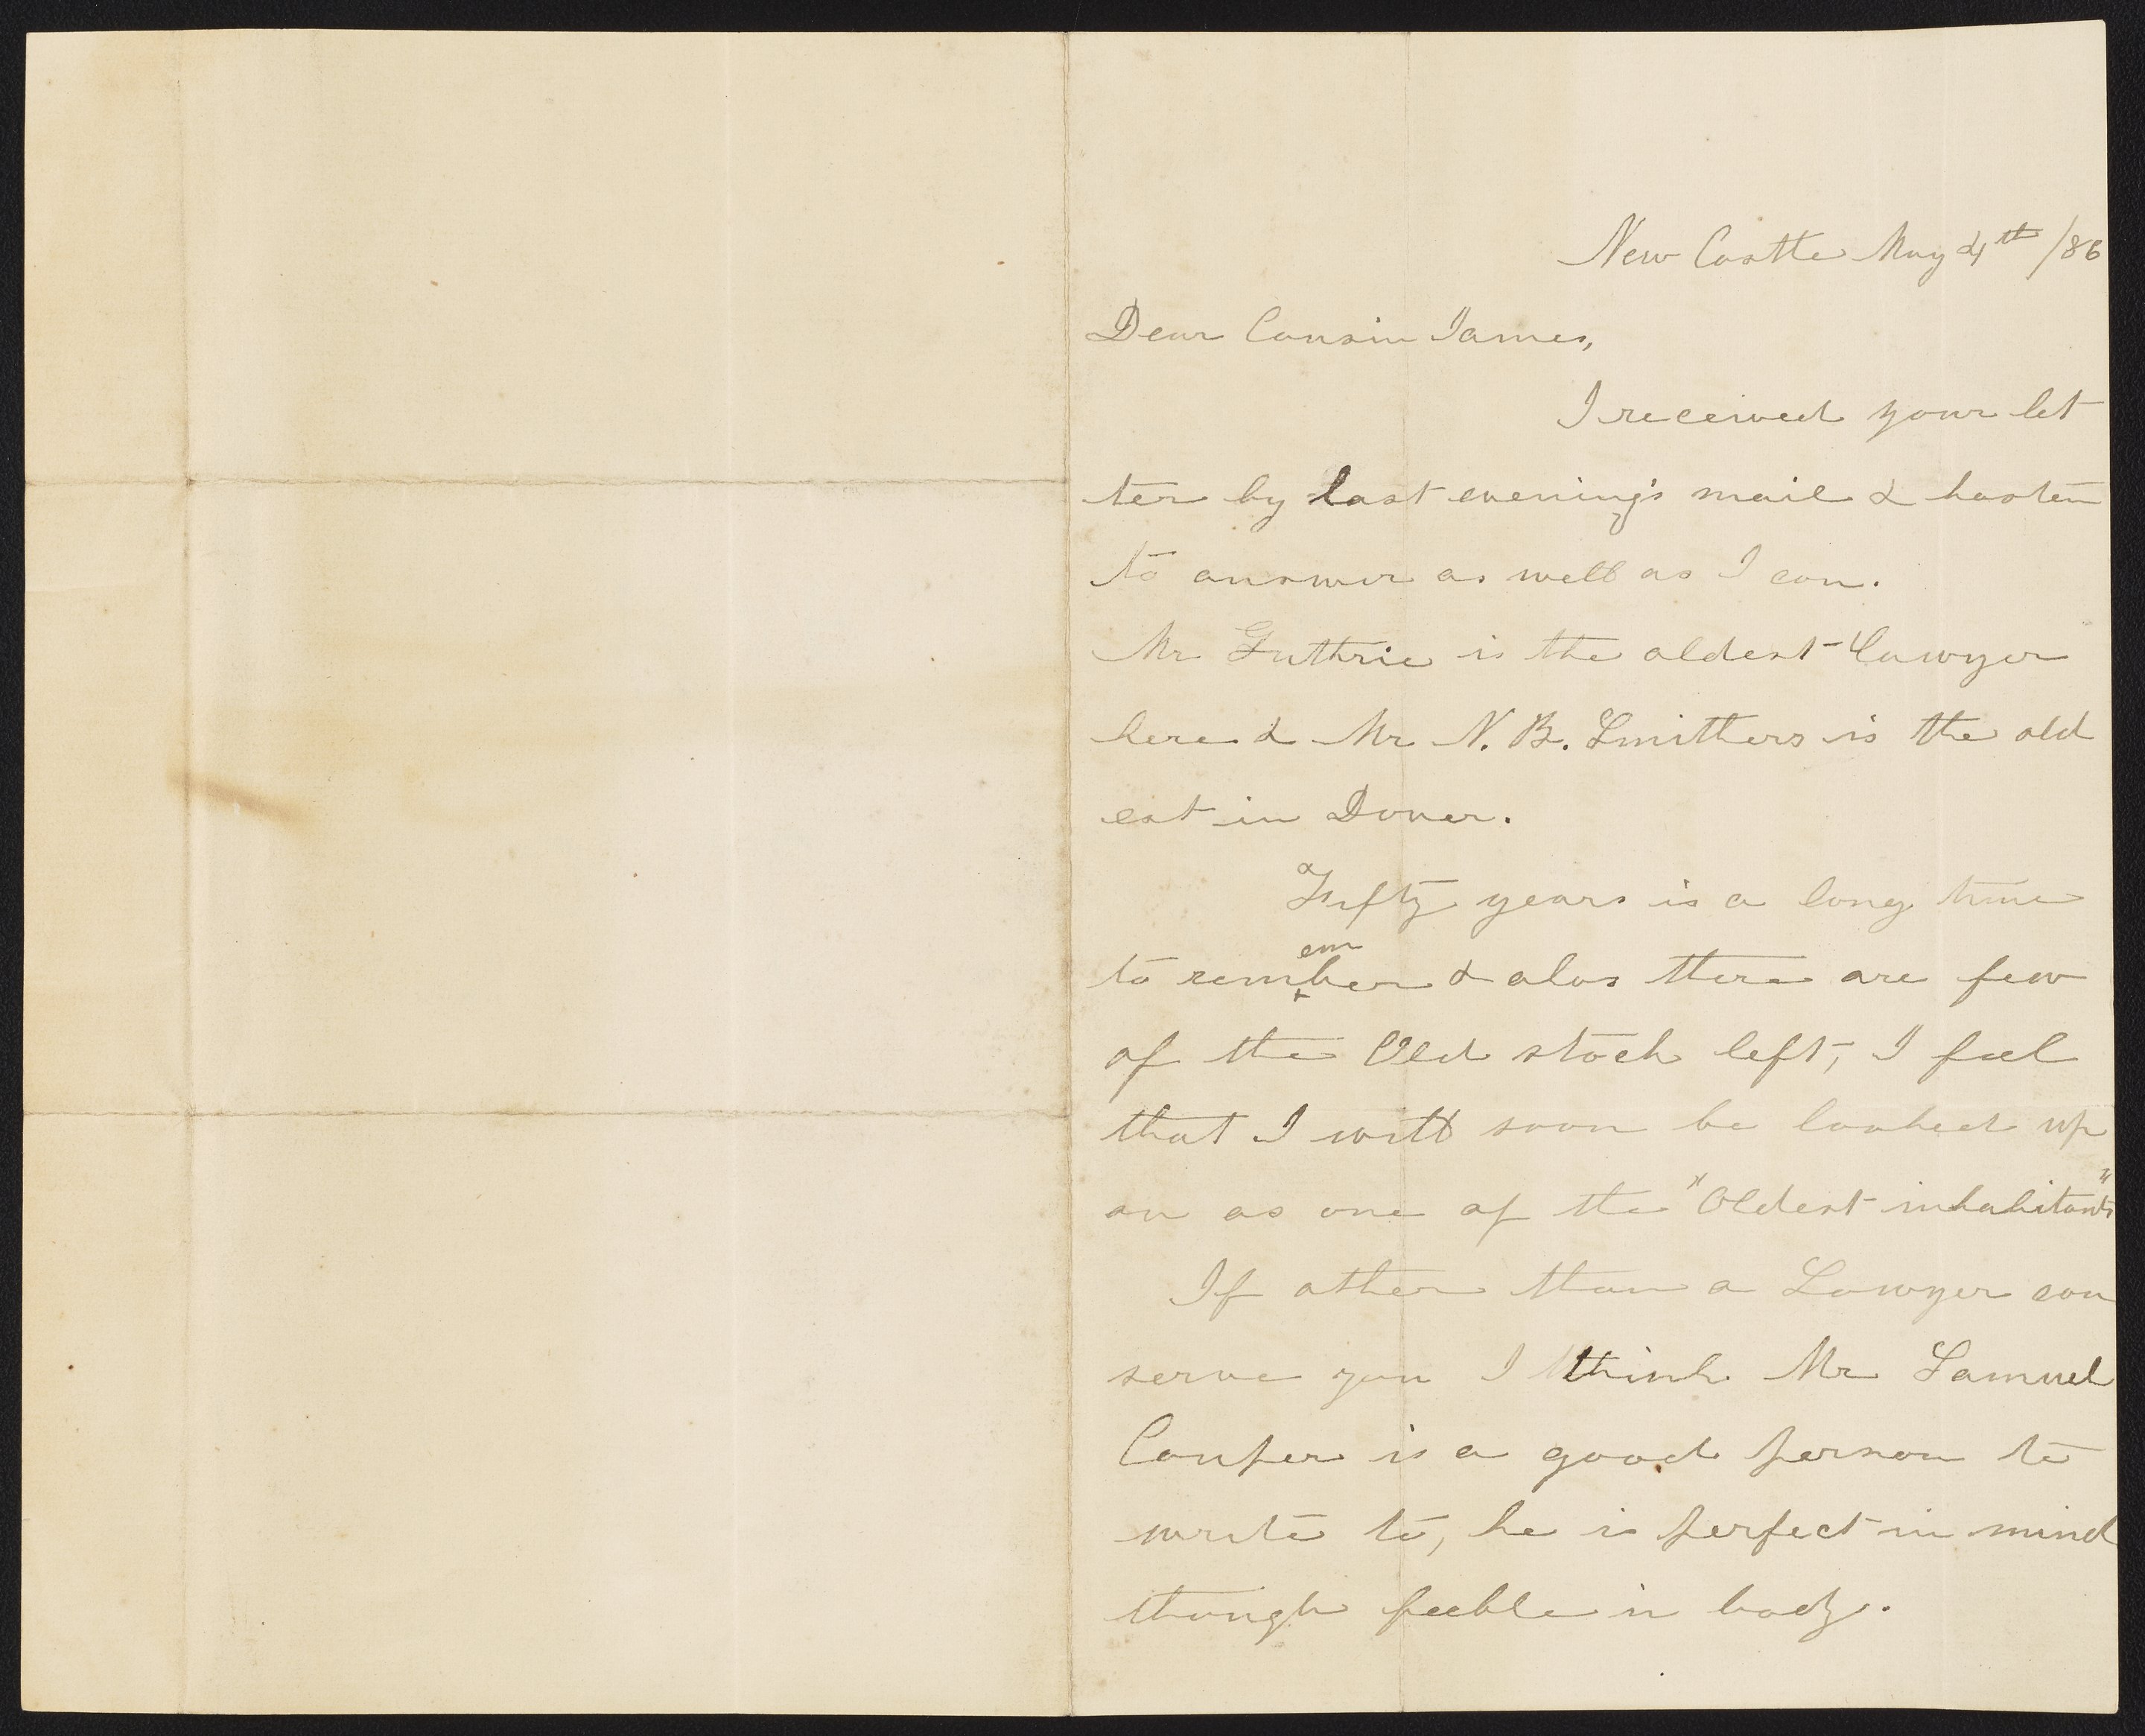 New Castle May 4th /86
Dear Cousin James,
I received your let
ter by last evening's mail & hasten
to answer as well as I can.
Mr Guthrie is the oldest Lawyer
here & Mr N. B. Smithers is the old
est in Dover.
Fifty years is a long time
to remember & alas there are few
of the Old stock left, I feel
that I will soon be looked up
on as one of the "Oldest inhabitants"
If other than a Lawyer can
serve you I think Mr Samuel
Couper is a good person to
write to, he is perfect in mind
though feeble in body.